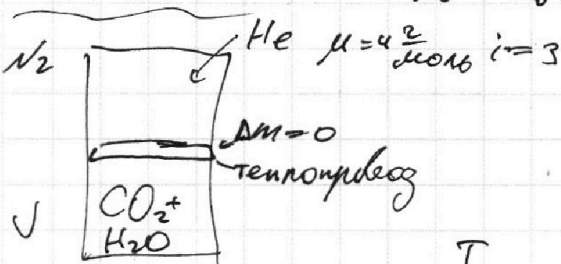 N2
He μ=4 г/моль i=3
Δm=0
теплопровод
V CO2+
H2O
T